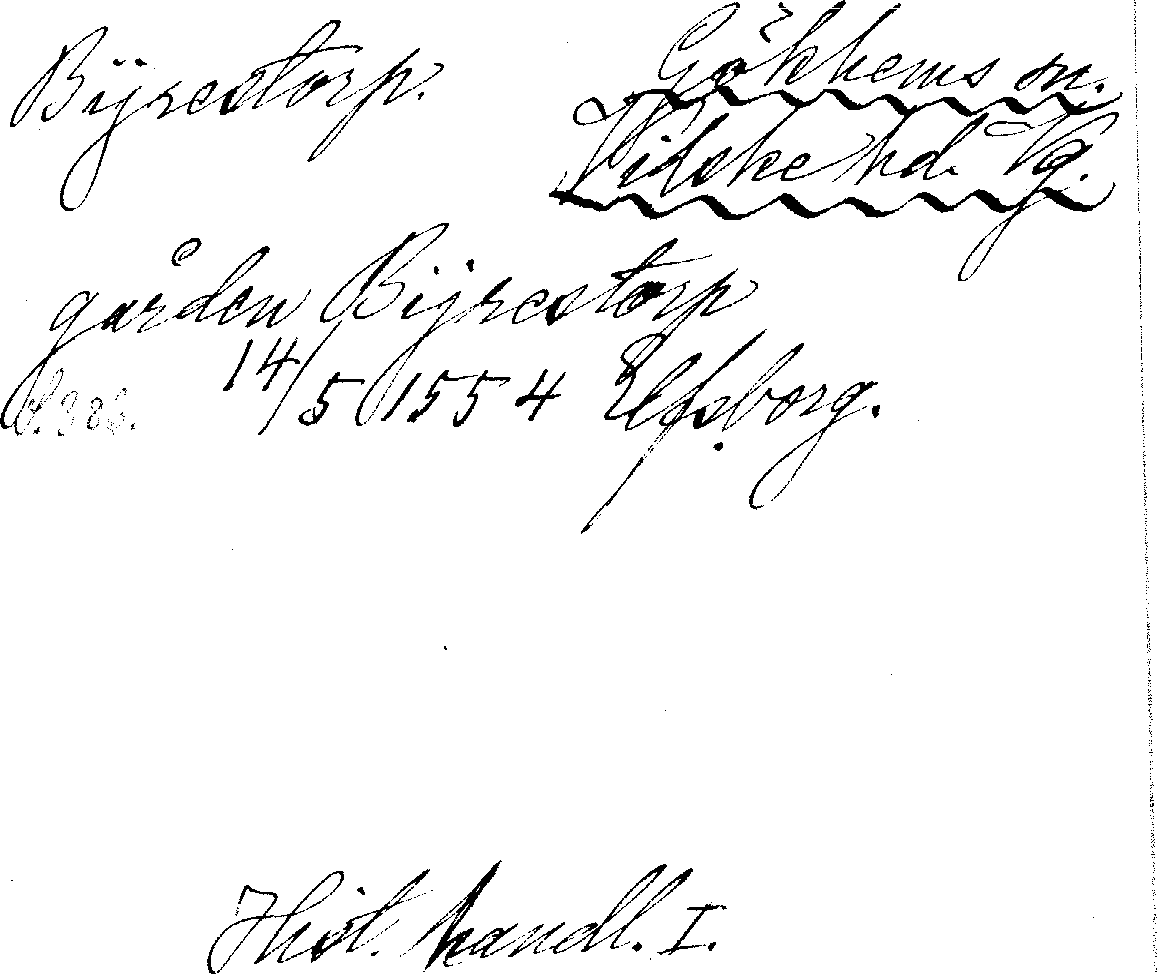 Bijrestorp. Gökhems sn.
Vilske hd. Vg.
gården Bijrestorp
14/5 1554 Elfsborg.
S. 383.
Hist. handl. I.